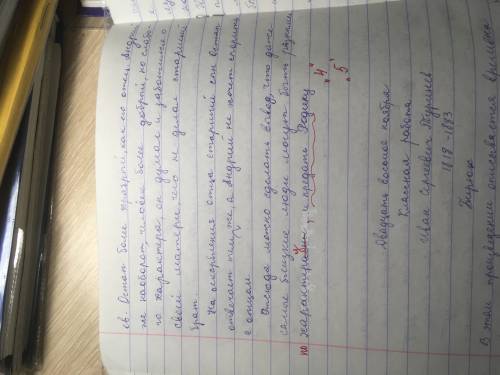 ев. Остап более храбрый, как его отец. Андрий
же наоборот, человек более добрый, но слабо-
го характера, он думал и заботился о
своей матери, чего не думал старший
брат.
На оскорбления отца старший сын Остап
отвечает тем же, а Андрий не хочет спорить
с отцом.
Отсюда можно сделать вывод, что даже
самые близкие люди могут быть разными
по характерам и предать Родину.
"4"
"5"
Двадцать восьмое ноября
Классная работа
Иван Сергеевич Тургенев
1818-1883
Бирюк
В этом произведении описывается